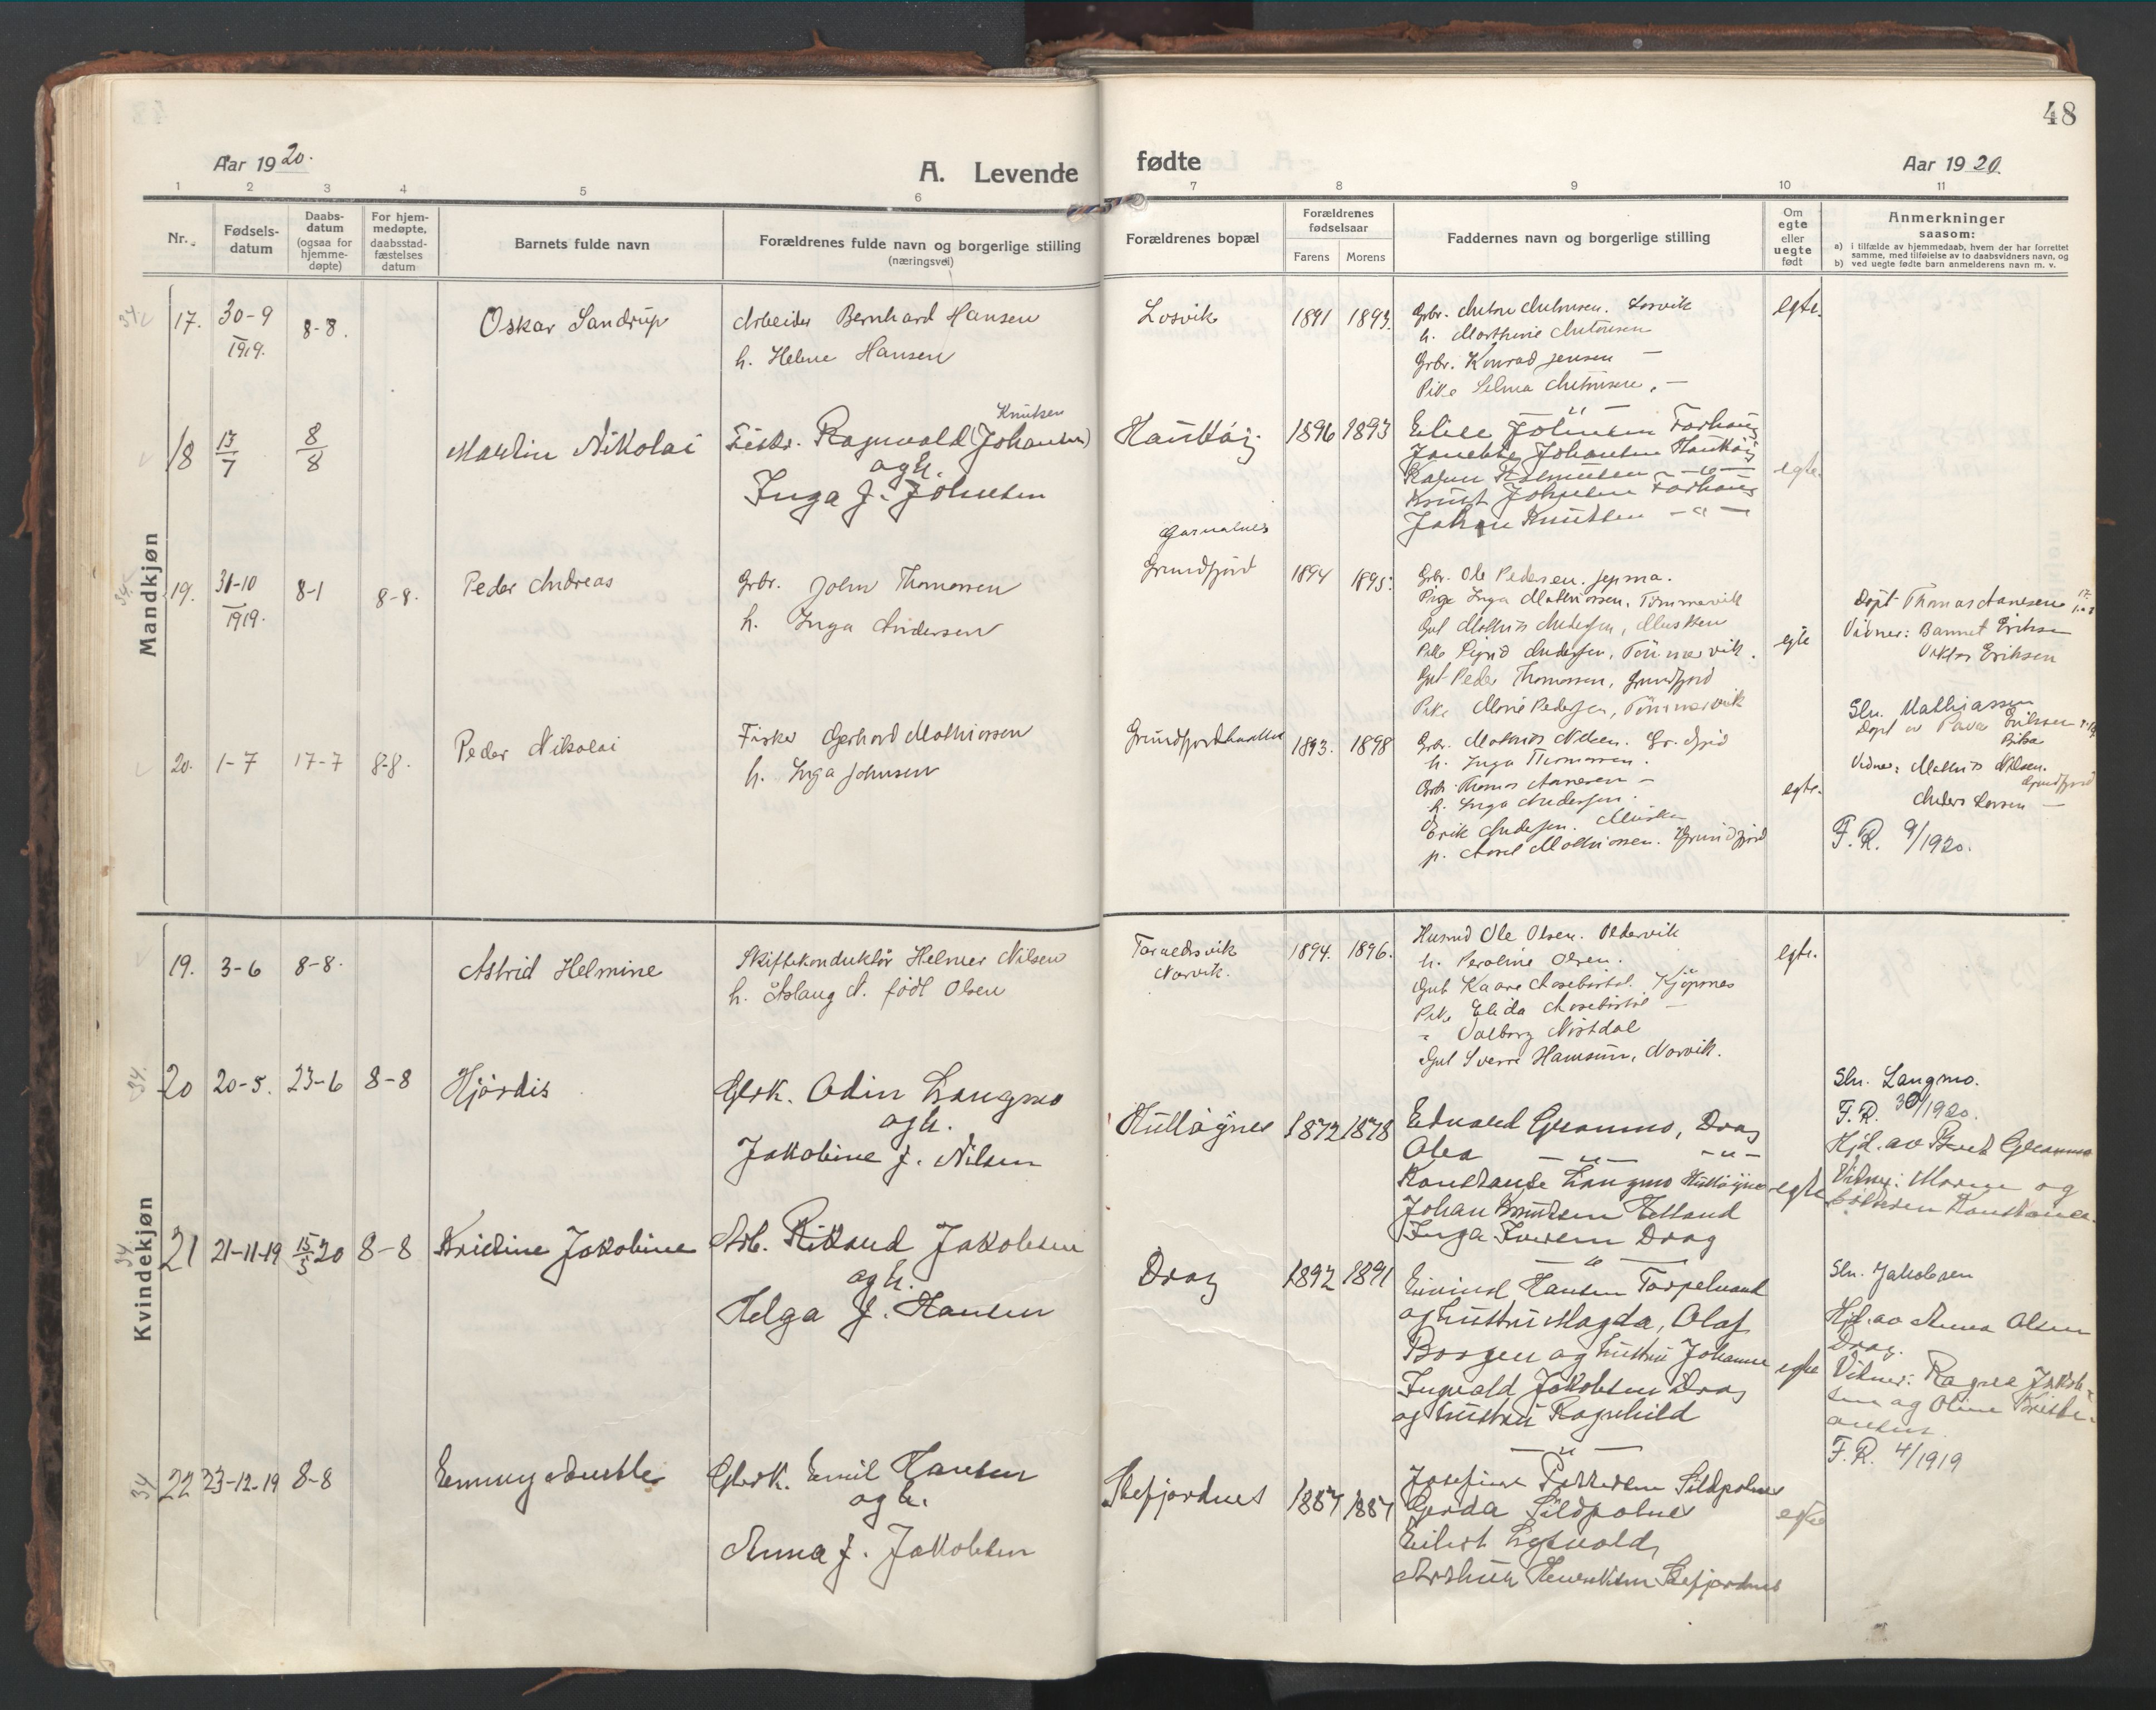 48
Aar 1920.
A. Levende
fødte
Aar 1920.
1 2 3 4 5 6 7 8 9 10 11
Nr.
Fødsels-
datum
Daabs-
datum
(ogsaa for
hjemme-
døpte)
For hjem-
medøpte,
daabsstad-
fæstelses
datum
Barnets fulde navn
Forældrenes fulde navn og borgerlige stilling
(næringsvei)
Forældrenes bopæl
Forældrenes
fødselsaar
Farens Morens
Faddernes navn og borgerlige stilling
Om
egte
eller
uegte
født
Anmerkninger
saasom:
a) i tilfælde av hjemmedaab, hvem der har forrettet
samme, med tilføielse av to daabsvidners navn, og
b) ved uegte fødte barn anmelderens navn m. v.
Mandkjøn
17. 30-9 1919. 8-8. Oskar Sandrup
Arbeider Bernhard Hansen
h. Helene Hansen
Losvik 1891 1893.
Grbr. Anton Antonsen. Losvik
h. Marthine Antonsen
Grbr. Konrad Jensen —
Pike Selma Antonsen. —
egte.
18 13/7 8/8 Martin Nikolai
Knutsen
Fiskr. Ragnvald (Johansen)
og h.
Inga f. Johnsen
Haukøy 1896 1893
Elise Johnsen Forhaug
Johansen Haukøy
Knut Johnsen Forhaug
Johan Knutsen — " —
egte.
19. 31-10 1919. 8-1 8-8. Peder Andreas
Grbr. John Thomassen
h. Inga Andersen
Grundfjord 1894 1895.
Grbr. Ole Pedersen. Jepma.
Pige Inga Mathiassen, Tømmervik
Gut Mathis Andersen, Musken
Pike Sigrid Andersen, Tømmervik.
Gut Peder Thomassen, Grundfjord
Pike Marie Pedersen, Tømmervik
egte
Døpt Thomas Aanesen
Vidner: Bannet Eriksen
Viktor Eriksen
20. 1-7 17-7 8-8. Peder Nikolai
Fisker Gerhard Mathiassen
h. Inga Johnsen
1893. 1898
Grbr. Mathis Nilsen. Gr. fjord
h. Inga Thomassen.
Grbr. Thomas Aanesen —
h. Inga Andersen.
Erik Andersen. Musken
p. Mathiassen. Grundfjord
egte.
Sln. Mathiassen
Døpt av Eriksen
Vidner: Mathis Nilsen.
Grundfjord
Anders Larsen —
F. R. 9/1920.
Kvindekjøn
19. 3-6 8-8. Astrid Helmine
Skiftekonduktør Helmer Nilsen
h. Aslaug N. født Olsen
Taraldsvik
Narvik.
1894. 1896.
Husmd Ole Olsen. Oldervik
h. Peroline Olsen.
Gut Kaare Kjøpsnes
Pike Elida —
" Valborg Nistdal
Gut Sverre Hamsun, Narvik.
egte.
20 20-5. 23-6 8-8 Hjørdis
Gbrk. Odin Langmo
og h.
Jakobine f. Nilsen
1872 1878
Edvard Grammo, Drag
Olea — " — — " —
Konstanse Langmo
Johan Knutsen
Inga Iversen Drag
egte
Sln. Langmo.
F. R. 30/1920.
Hjd. av Grammo
Vidner: Moren og
21 21-11-19 15/5 20 8-8 Kristine Jakobine
Arb. Rikard Jakobsen
og h.
Helga f. Hansen
Drag 1892 1891
— " —
Eivind Hansen
og hustru Magda, Olaf
Borgen og hustru Johanne
Ingvald Jakobsen Drag
og hustru Ragnhild
egte
Sln. Jakobsen
Hjd. av Anna Olsen
Drag.
Vidner: Ragna Jakob-
sen og Oline Kristi-
ansen.
F. R. 4/1919
22 23-12-19 8-8
Gbrk. Emil Hansen
og h.
Anna f. Jakobsen
Stefjordnes 1887 1887
— " —
Josefine Pettersen Sildpolnes
Gerda Sildpolnes
Henriksen Stefjordnes
egte